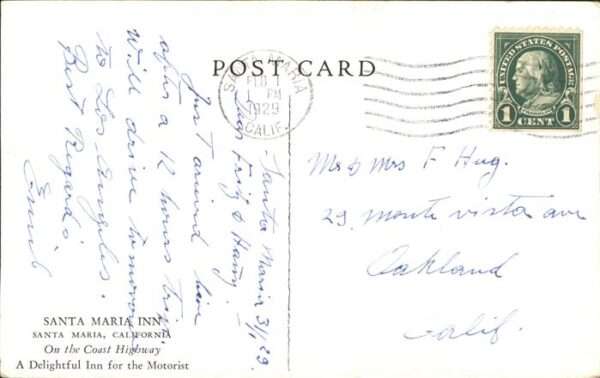 POST CARD
SANTA MARIA
FEB 1
PM
1929
CALIF.
UNITED STATES POSTAGE
FRANKLIN
1 CENT 1
Santa Maria 31/1 29.
Dear Fritz & Hany.
Just arrived here
after a 12 hours trip.
Will drive tomorrow
to Los Angeles.
Best Regards
Emil
Mr & Mrs F Hug.
29 monte vista ave
Oakland
Calif.
SANTA MARIA INN
SANTA MARIA, CALIFORNIA
On the Coast Highway
A Delightful Inn for the Motorist